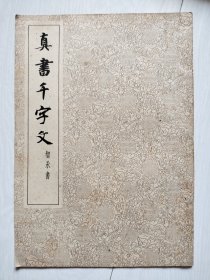 真書千字文
智永書